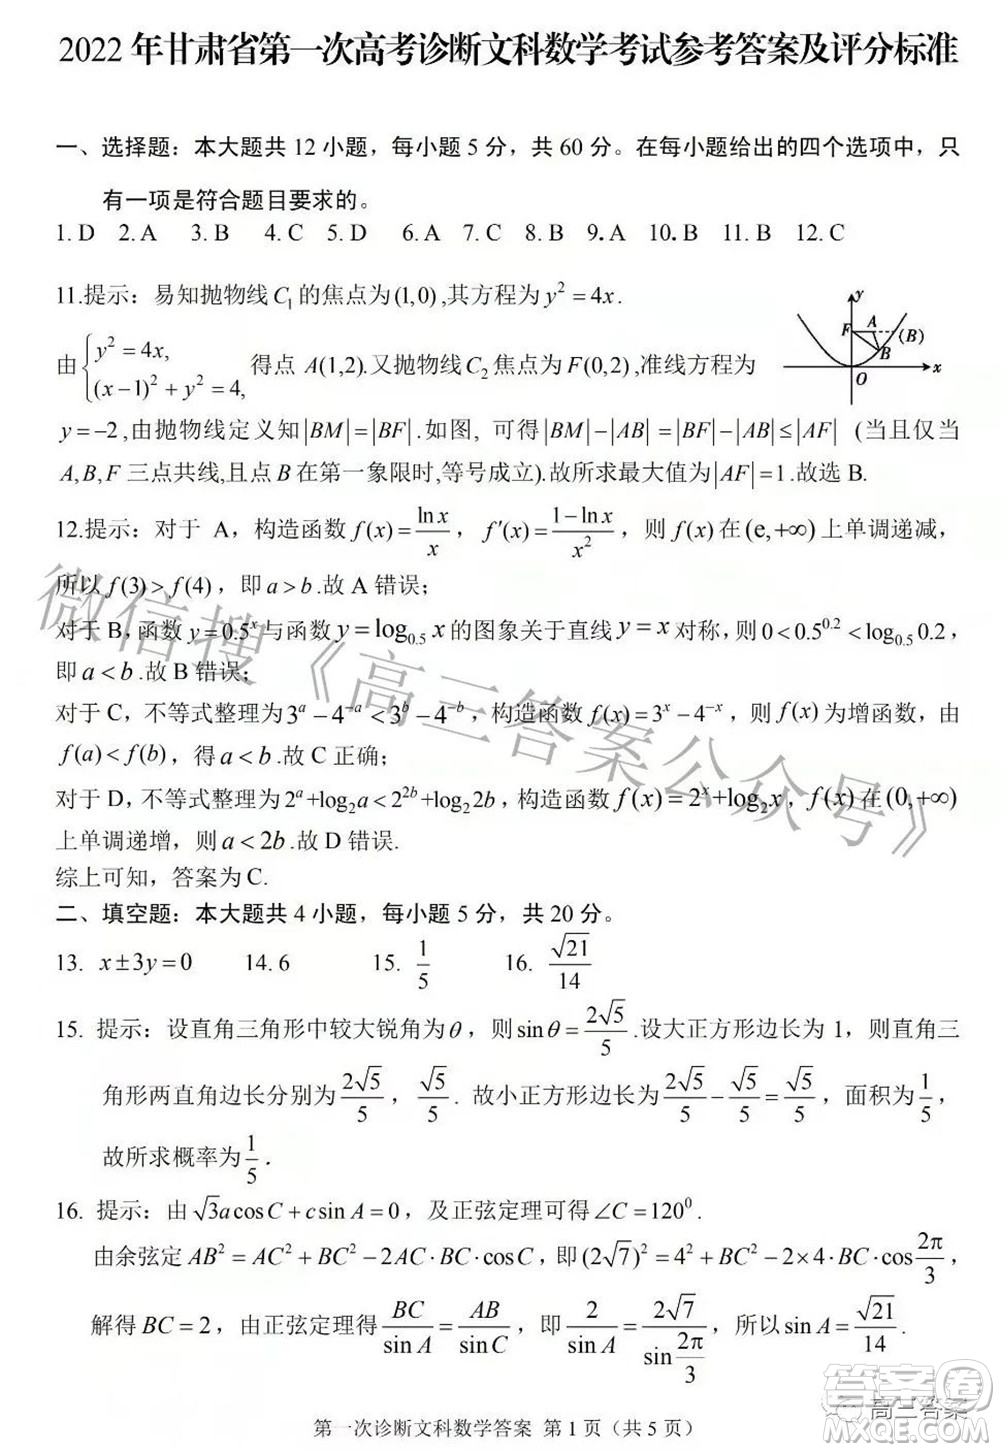 2022 年甘肃省第一次高考诊断文科数学考试参考答案及评分标准
一、选择题：本大题共 12 小题，每小题 5 分，共 60 分。在每小题给出的四个选项中，只
有一项是符合题目要求的。
1. D 2. A 3. B 4. C 5. D 6. A 7. C 8. B 9. A 10. B 11. B 12. C
11.提示：易知抛物线 C₁ 的焦点为 (1,0) ,其方程为 y² = 4x .
由 { y² = 4x, (x−1)² + y² = 4, 得点 A(1,2).又抛物线 C₂ 焦点为 F(0,2) ,准线方程为
y F A (B) B O x
y = −2 ,由抛物线定义知 |BM| = |BF| .如图, 可得 |BM| − |AB| = |BF| − |AB| ≤ |AF| (当且仅当
A, B, F 三点共线,且点 B 在第一象限时,等号成立).故所求最大值为 |AF| = 1 .故选 B.
12.提示：对于 A，构造函数 f(x) = ln x / x ，f′(x) = (1 − ln x) / x² ，则 f(x) 在 (e, +∞) 上单调递减，
所以 f(3) > f(4) ，即 a > b .故 A 错误；
对于 B,函数 y = 0.5ˣ 与函数 y = log₀.₅ x 的图象关于直线 y = x 对称,则 0 < 0.5^0.2 < log₀.₅ 0.2 ，
即 a < b .故 B 错误；
对于 C，不等式整理为 3^a − 4^−a < 3^b − 4^−b ，构造函数 f(x) = 3^x − 4^−x ，则 f(x) 为增函数，由
f(a) < f(b) ，得 a < b .故 C 正确；
对于 D，不等式整理为 2^a + log₂a < 2^2b + log₂2b ，构造函数 f(x) = 2^x + log₂x ，f(x) 在 (0, +∞)
上单调递增，则 a < 2b .故 D 错误.
综上可知，答案为 C.
二、填空题：本大题共 4 小题，每小题 5 分，共 20 分。
13. x ± 3y = 0 14. 6 15. 1/5 16. √21/14
15. 提示：设直角三角形中较大锐角为 θ ，则 sin θ = 2√5/5 .设大正方形边长为 1，则直角三
角形两直角边长分别为 2√5/5 ，√5/5 . 故小正方形边长为 2√5/5 − √5/5 = √5/5 ，面积为 1/5 ，
故所求概率为 1/5 .
16. 提示：由 √3a cos C + c sin A = 0 ，及正弦定理可得 ∠C = 120⁰ .
由余弦定 AB² = AC² + BC² − 2AC · BC · cos C ，即 (2√7)² = 4² + BC² − 2×4·BC cos 2π/3 ，
解得 BC = 2 ，由正弦定理得 BC/sin A = AB/sin C ，即 2/sin A = 2√7/sin 2π/3 ，所以 sin A = √21/14 .
第一次诊断文科数学答案 第 1 页（共 5 页）
微信搜《高三答案公众号》
高三答案
答案圈
MXQE.COM